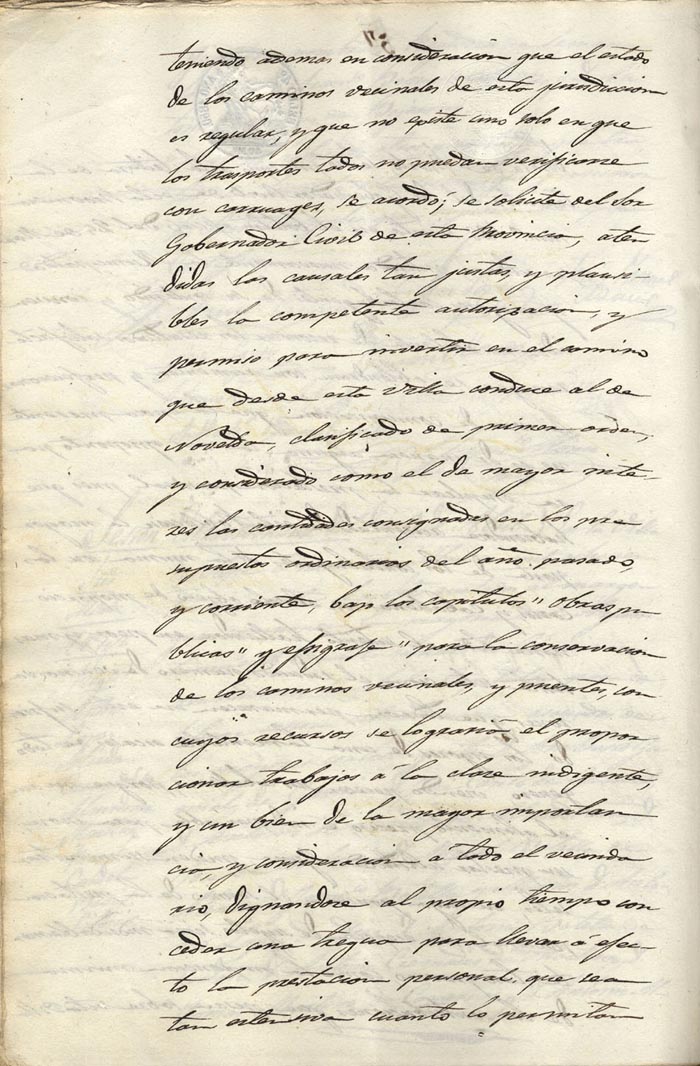 teniendo ademas en consideracion que el estado
de los caminos vecinales de esta jurisdiccion
es regular, y que no existe uno solo en que
los trasportes todos no puedan verificarse
con carruages, se acordó; se solicite del Sor
Gobernador Civil de esta Provincia, aten
didas las causales tan justas, y plausi-
bles la competente autorizacion, y
permiso para invertir en el camino
que desde esta Villa conduce al de
Novelda, clasificado de primer orden,
y considerado como el de mayor inte-
res las cantidades consignadas en los pre
supuestos ordinarios del año pasado,
y corriente, bajo los capitulos " Obras pu
blicas" y epigrafe " para la conservacion
de los caminos vecinales, y puentes, con
cuyos recursos se lograria el propor
cionar trabajos á la clase indigente,
y un bien de la mayor importan
cia, y consideracion a todo el vecinda
rio, dignandose al propio tiempo con
ceder una tregua para llevar á efec-
to la prestacion personal, que sea
tan estensiva cuanto lo permitan